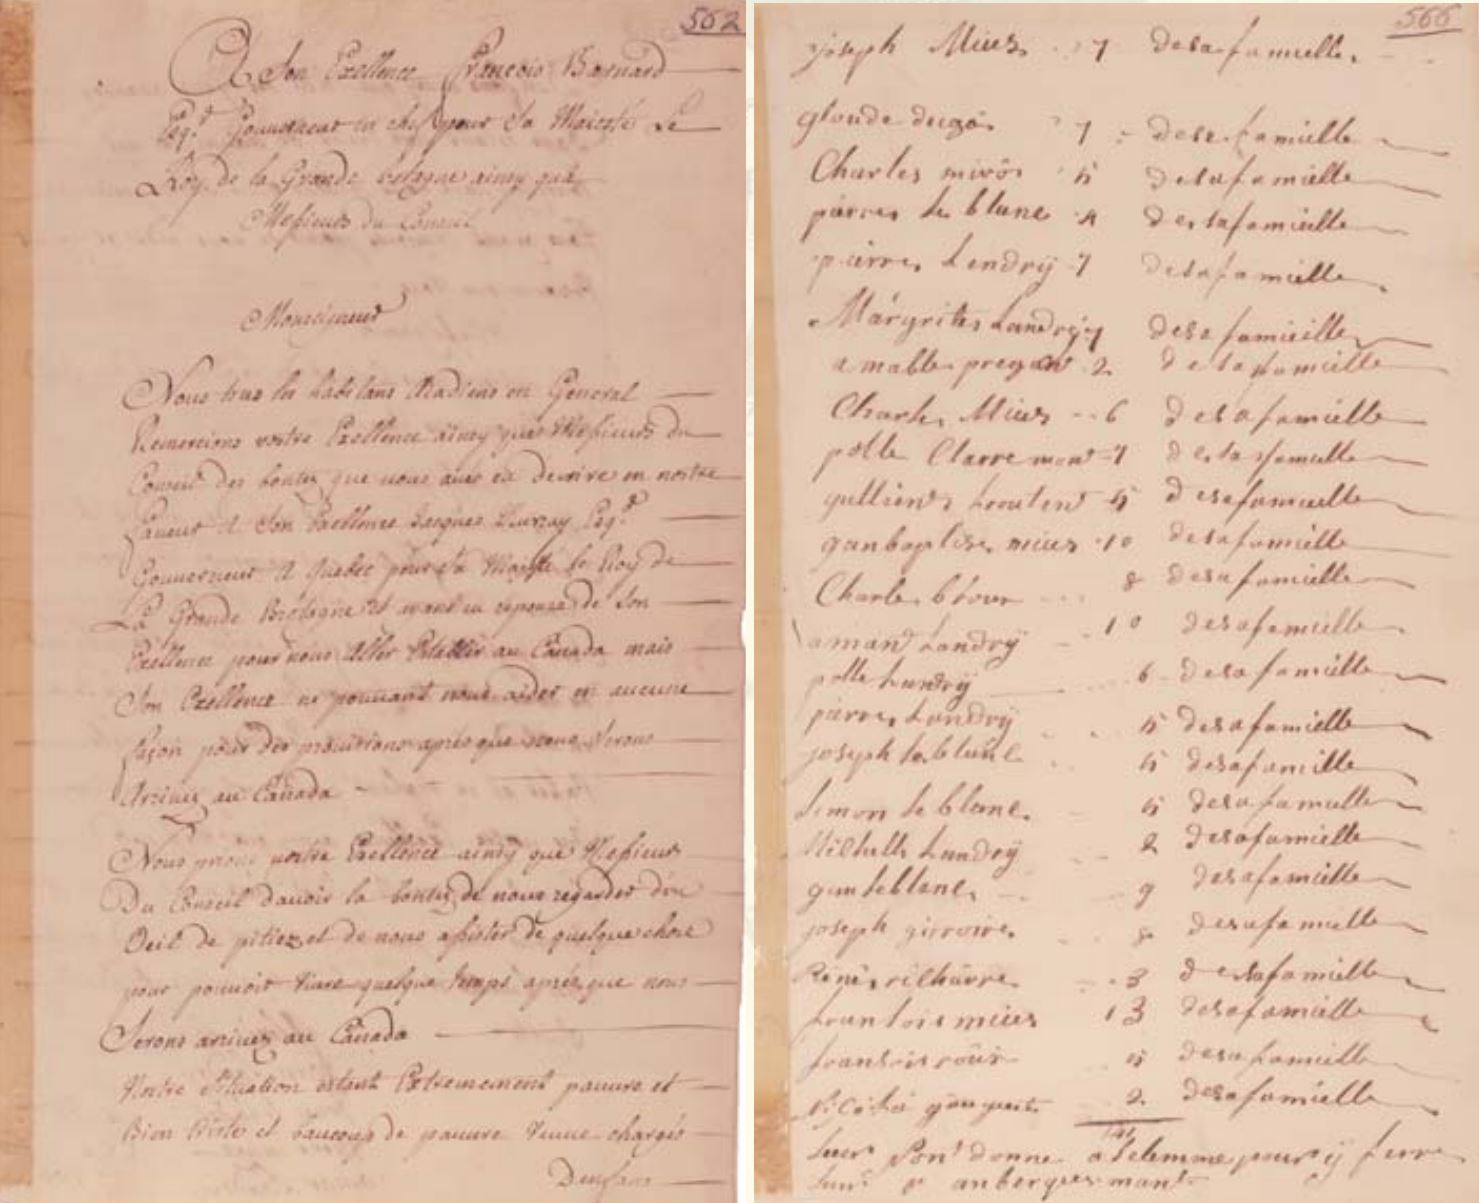 562
A Son Exellence François Barnard
Esq.r Gouverneur en chef pour Sa Maiesté Le
Roy de la Grande bretagne ainsy que
Messieurs du Conseil
Monseigneur
Nous tous les habitans Acadiens en General
Remercions vostre Exellence ainsy que Messieurs du
Conseil des bontez que vous avez eu descrire en nostre
faveur A Son Exellence Jacques Murray Esq.r
Gouverneur A Quebec pour Sa Majesté le Roy de
La Grande Bretagne et avons eu réponze de Son
Exellence pour nous Aller Etablir au Canada mais
Son Exellence ne pouvant nous aider en aucune
façon pour des provitions après que nous Serons
Arrivez au Canada
Nous prions vostre Exellence ainsy que Messieurs
Du Conseil davoir la bontez de nous regarder d'un
Oeil de pitiez et de nous assister de quelque chose
pour pouvoir vivre quelque temps après que nous
Serons arrivez au Canada
Nostre Situation estant Extremement pauvre et
Bien triste et baucoup de pauvre veuve chargés
Denfans
566
joseph Mius 7 desa famielle
gloude dugas 7 desa famielle
Charles mirós 5 desa famielle
pierre le blanc 4 de sa famielle
pierre Lendrÿ 7 desa famielle
Márgrite Landrÿ 7 desa famielle
amable pregant 2 de sa famielle
Charle Mius 6 desa famielle
polle Clarremont 7 de sa famielle
5 desa famielle
ganbaptise mius 10 desa famielle
Charle brour 8 desa famielle
amant Landrÿ 10 desa famielle
polle Landrÿ 6 desa famielle
pierre Landrÿ 5 desa famielle
joseph le blanc 5 desa famielle
Simon le blanc 5 desa famielle
Landrÿ 2 desa famielle
gan leblanc 9 desa famielle
joseph girroire 8 desa famielle
René rilhárre 3 desa famielle
fransois mius 13 desa famielle
fransois róúis 5 desa famielle
2 desa famielle
141